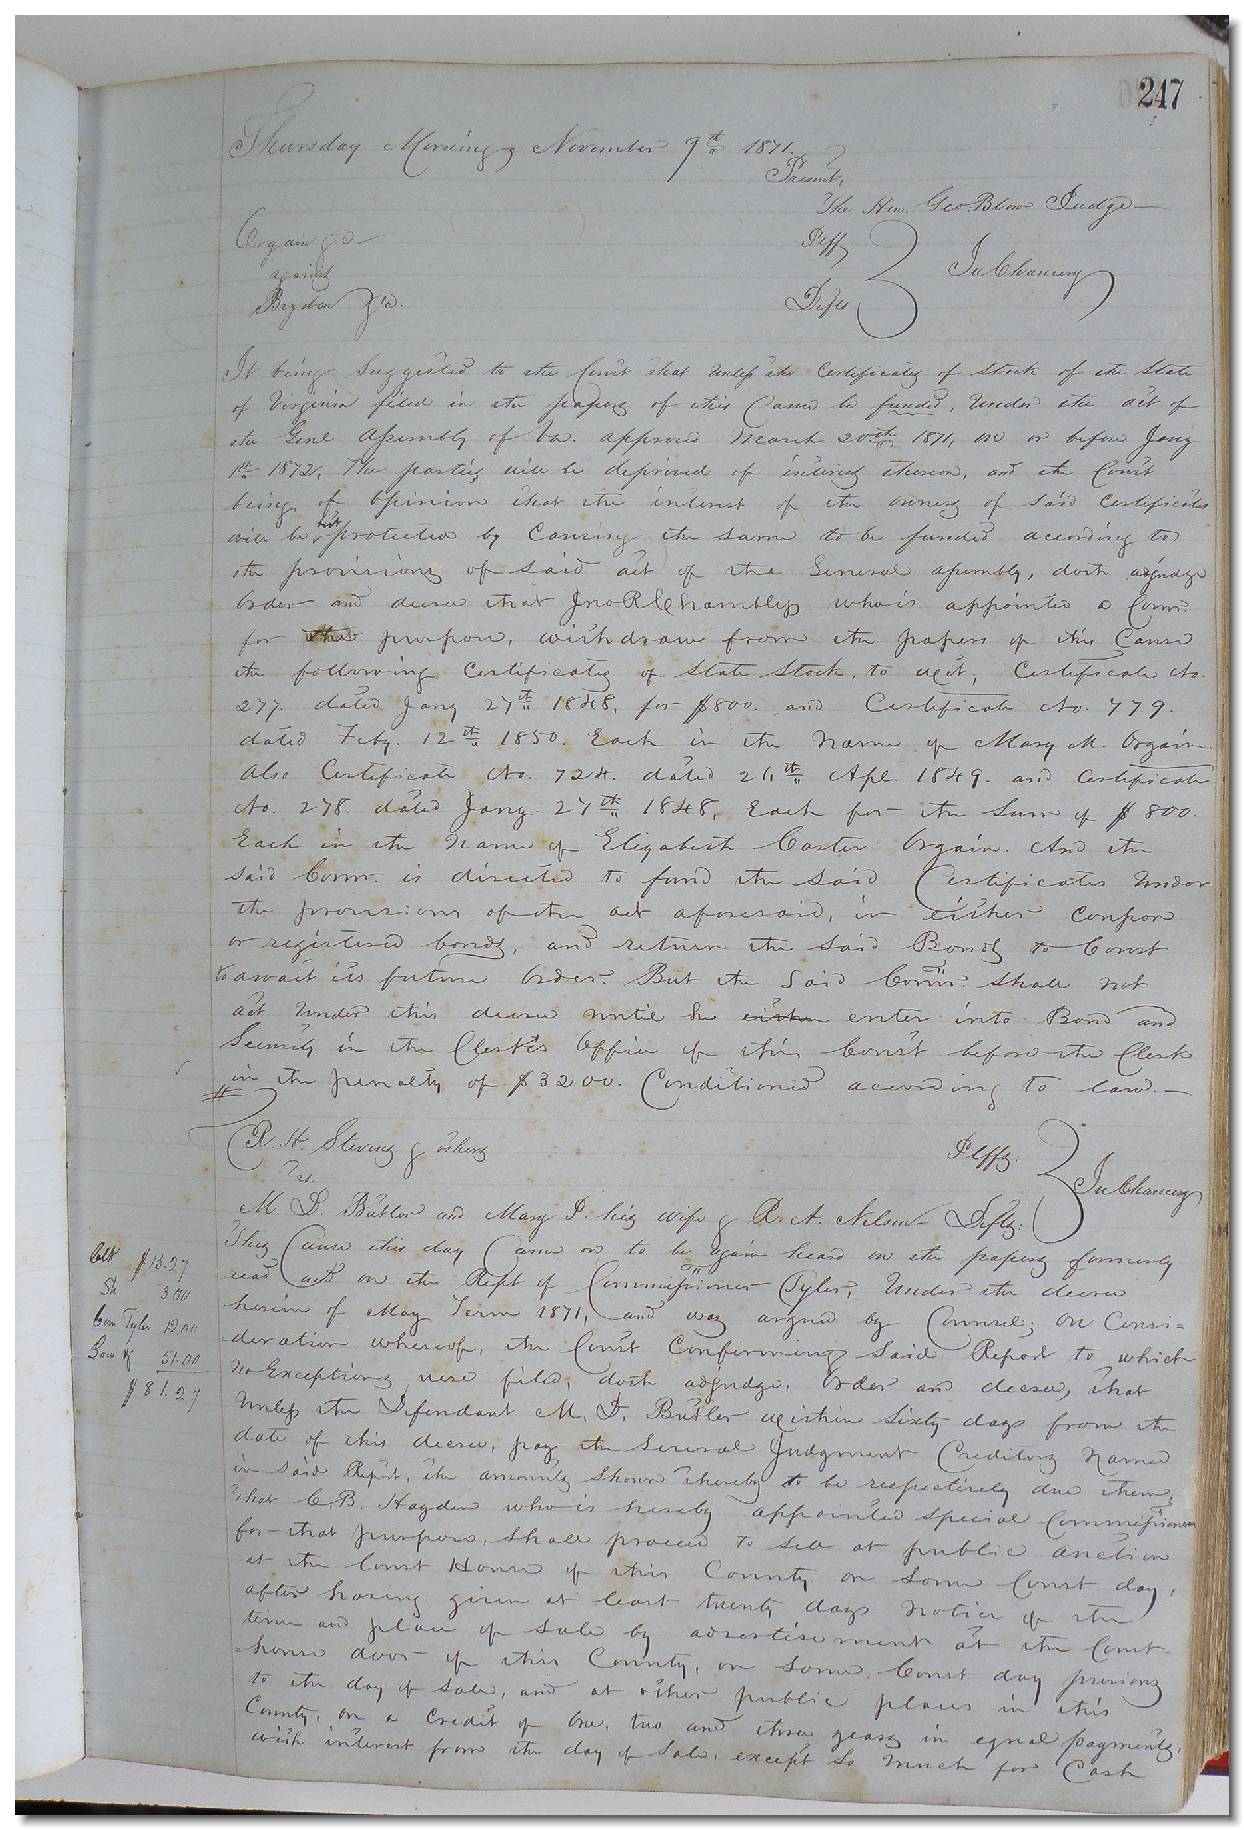 247
Thursday Morning November 9th 1871.
Present,
The Hon. Geo. Blow Judge
Orgain &c Plff
against In Chancery
&c. Defts
It being suggested to the Court that unless the Certificates of Stock of the State
of Virginia filed in the papers of this Cause be funded, under the act of
the Genl Assembly of Va. approved March 20th 1871, on or before Jany
1st 1872, the parties will be deprived of interest thereon, and the Court
being of opinion that the interest of the owners of said Certificates
will be protected by Causing the same to be funded according to
the provisions of said act of the General assembly, doth adjudge
Order and decree that Jno R Chambliss who is appointed a Comr.
for that purpose, withdraw from the papers of this Cause
the following Certificates of State Stock, to wit; Certificate No.
277. dated Jany 27th 1848, for $800. and Certificate No. 779.
dated Feby. 12th 1850. Each in the name of Mary M. Orgain.
Also Certificate No. 724. dated 26th Apl 1849. and Certificate
No. 278 dated Jany 27th 1848, Each for the sum of $800.
Each in the name of Elizabeth Carter Orgain. And the
said Comr. is directed to fund the said Certificates under
the provisions of the act aforesaid, in either coupon
or registered bonds, and return the said Bonds to Court
to await its future Order. But the said Comr. shall not
act under this decree until he either enter into Bond and
Security in the Clerk's Office of this Court before the Clerk
in the penalty of $3200. Conditioned according to law.—
R. H. Stevens & others Plffs.
vs. In Chancery
M. D. Butler and Mary P. his wife & R. A. Nelson Defts:
This Cause this day Came on to be again heard on the papers formerly
read and on the Rept of Commissioner Tyler, under the decree
herein of May Term 1871, and was argued by Counsel; on Consi=
deration whereof, the Court Confirming said Report to which
no Exceptions were filed, doth adjudge, Order and decree, that
Unless the Defendant M. D. Butler within sixty days from the
date of this decree, pay the several Judgment Creditors named
in said Report, the amounts shown thereby to be respectively due them,
that C B. Hayden who is hereby appointed special Commissioner
for that purpose, shall proceed to sell at public auction
at the Court House of this County on some Court day,
after having given at least twenty days notice of the
terms and place of sale by advertisement at the Court
=house door of this County, on some Court day previous
to the day of sale, and at other public places in this
County, on a credit of one, two and three years in equal payments,
with interest from the day of sale, except so much for Cash
Clk $15.27
Sh 3.00
Com Tyler 12.00
51.00
$81.27